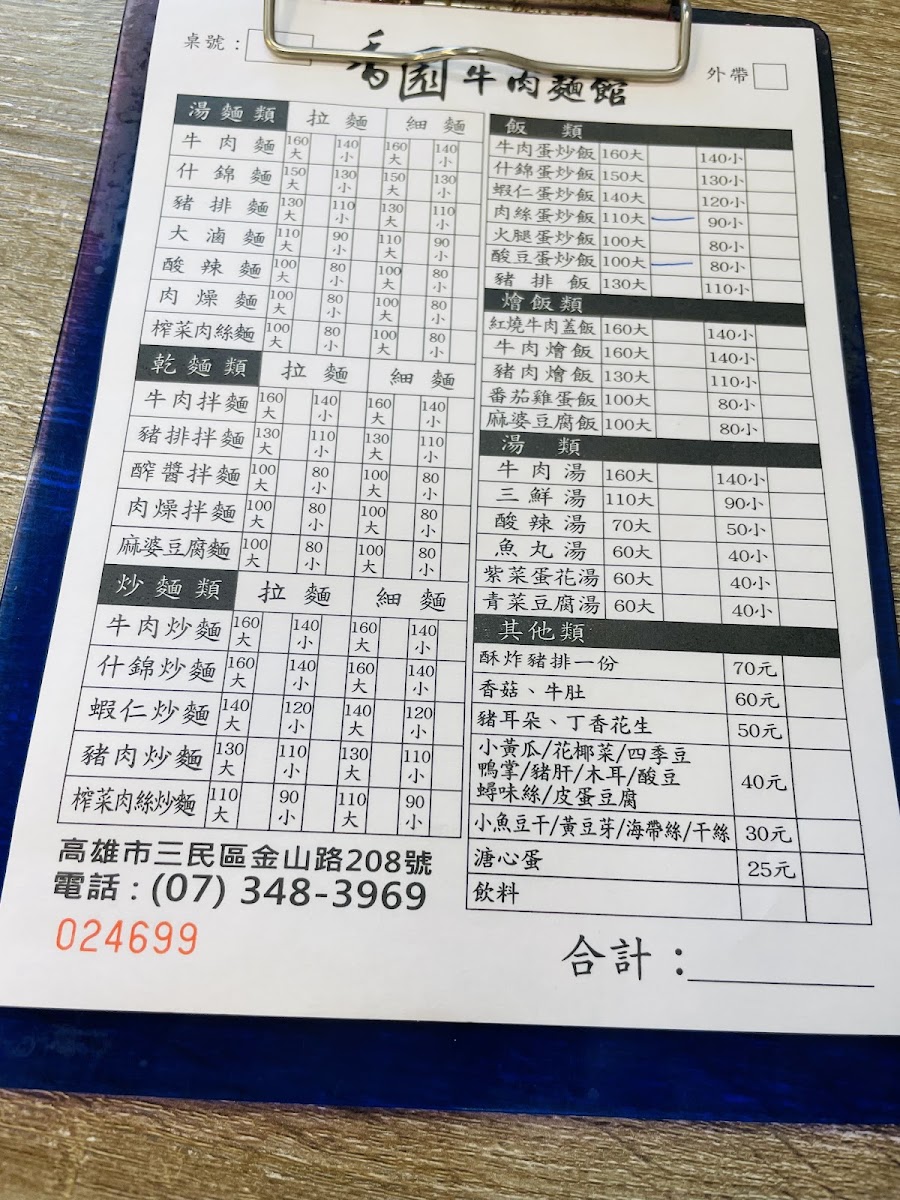 桌號：
香園牛肉麵館
外帶
湯麵類 拉麵 細麵
牛肉麵 160大 140小 160大 140小
什錦麵 150大 130小 150大 130小
豬排麵 130大 110小 130大 110小
大滷麵 110大 90小 110大 90小
酸辣麵 100大 80小 100大 80小
肉燥麵 100大 80小 100大 80小
榨菜肉絲麵 100大 80小 100大 80小
乾麵類 拉麵 細麵
牛肉拌麵 160大 140小 160大 140小
豬排拌麵 130大 110小 130大 110小
醡醬拌麵 100大 80小 100大 80小
肉燥拌麵 100大 80小 100大 80小
麻婆豆腐麵 100大 80小 100大 80小
炒麵類 拉麵 細麵
牛肉炒麵 160大 140小 160大 140小
什錦炒麵 160大 140小 160大 140小
蝦仁炒麵 140大 120小 140大 120小
豬肉炒麵 130大 110小 130大 110小
榨菜肉絲炒麵 110大 90小 110大 90小
高雄市三民區金山路208號
電話：(07) 348-3969
024699
飯類
牛肉蛋炒飯 160大 140小
什錦蛋炒飯 150大 130小
蝦仁蛋炒飯 140大 120小
肉絲蛋炒飯 110大 90小
火腿蛋炒飯 100大 80小
酸豆蛋炒飯 100大 80小
豬排飯 130大 110小
燴飯類
紅燒牛肉蓋飯 160大 140小
牛肉燴飯 160大 140小
豬肉燴飯 130大 110小
番茄雞蛋飯 100大 80小
麻婆豆腐飯 100大 80小
湯類
牛肉湯 160大 140小
三鮮湯 110大 90小
酸辣湯 70大 50小
魚丸湯 60大 40小
紫菜蛋花湯 60大 40小
青菜豆腐湯 60大 40小
其他類
酥炸豬排一份 70元
香菇、牛肚 60元
豬耳朵、丁香花生 50元
小黃瓜/花椰菜/四季豆
鴨掌/豬肝/木耳/酸豆 40元
蟳味絲/皮蛋豆腐
小魚豆干/黃豆芽/海帶絲/干絲 30元
溏心蛋 25元
飲料
合計：